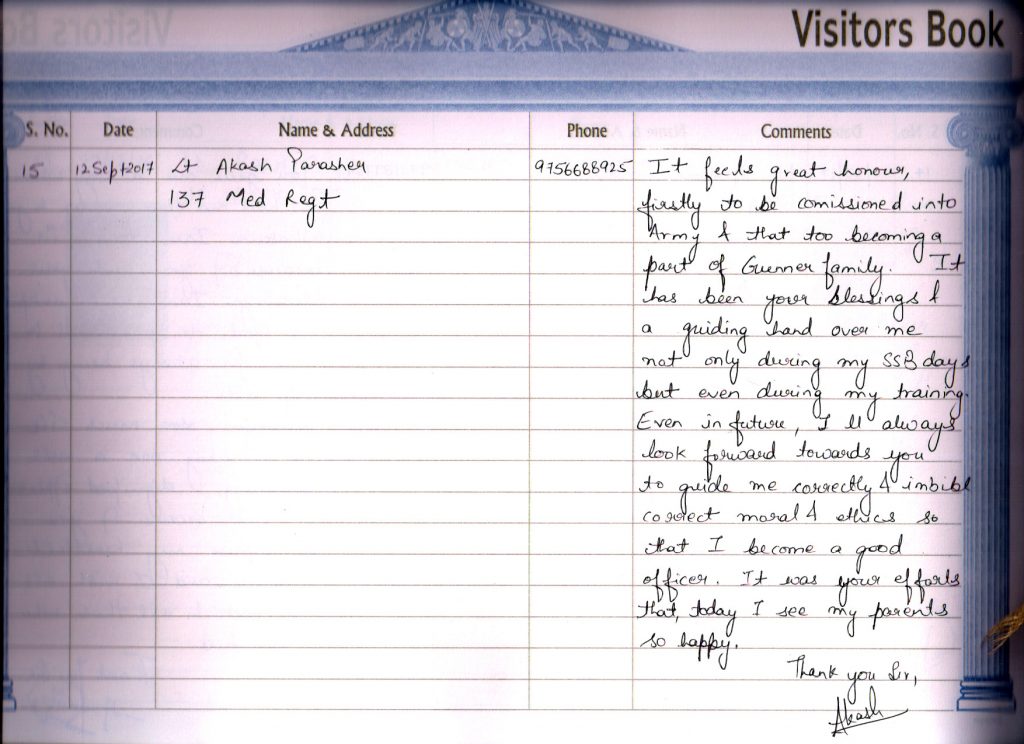 Visitors Book
S. No. Date Name & Address Phone Comments
15 12 Sept 2017 Lt Akash Parasher 9756688925 It feels great honour,
137 Med Regt firstly to be comissioned into
Army & that too becoming a
part of Gunner family. It
has been your blessings &
a guiding hand over me
not only during my SSB days
but even during my training.
Even in future, I ll always
look forward towards you
to guide me correctly & imbibe
correct moral & ethics so
that I become a good
officer. It was your efforts
that, today I see my parents
so happy.
Thank you Sir,
Akash